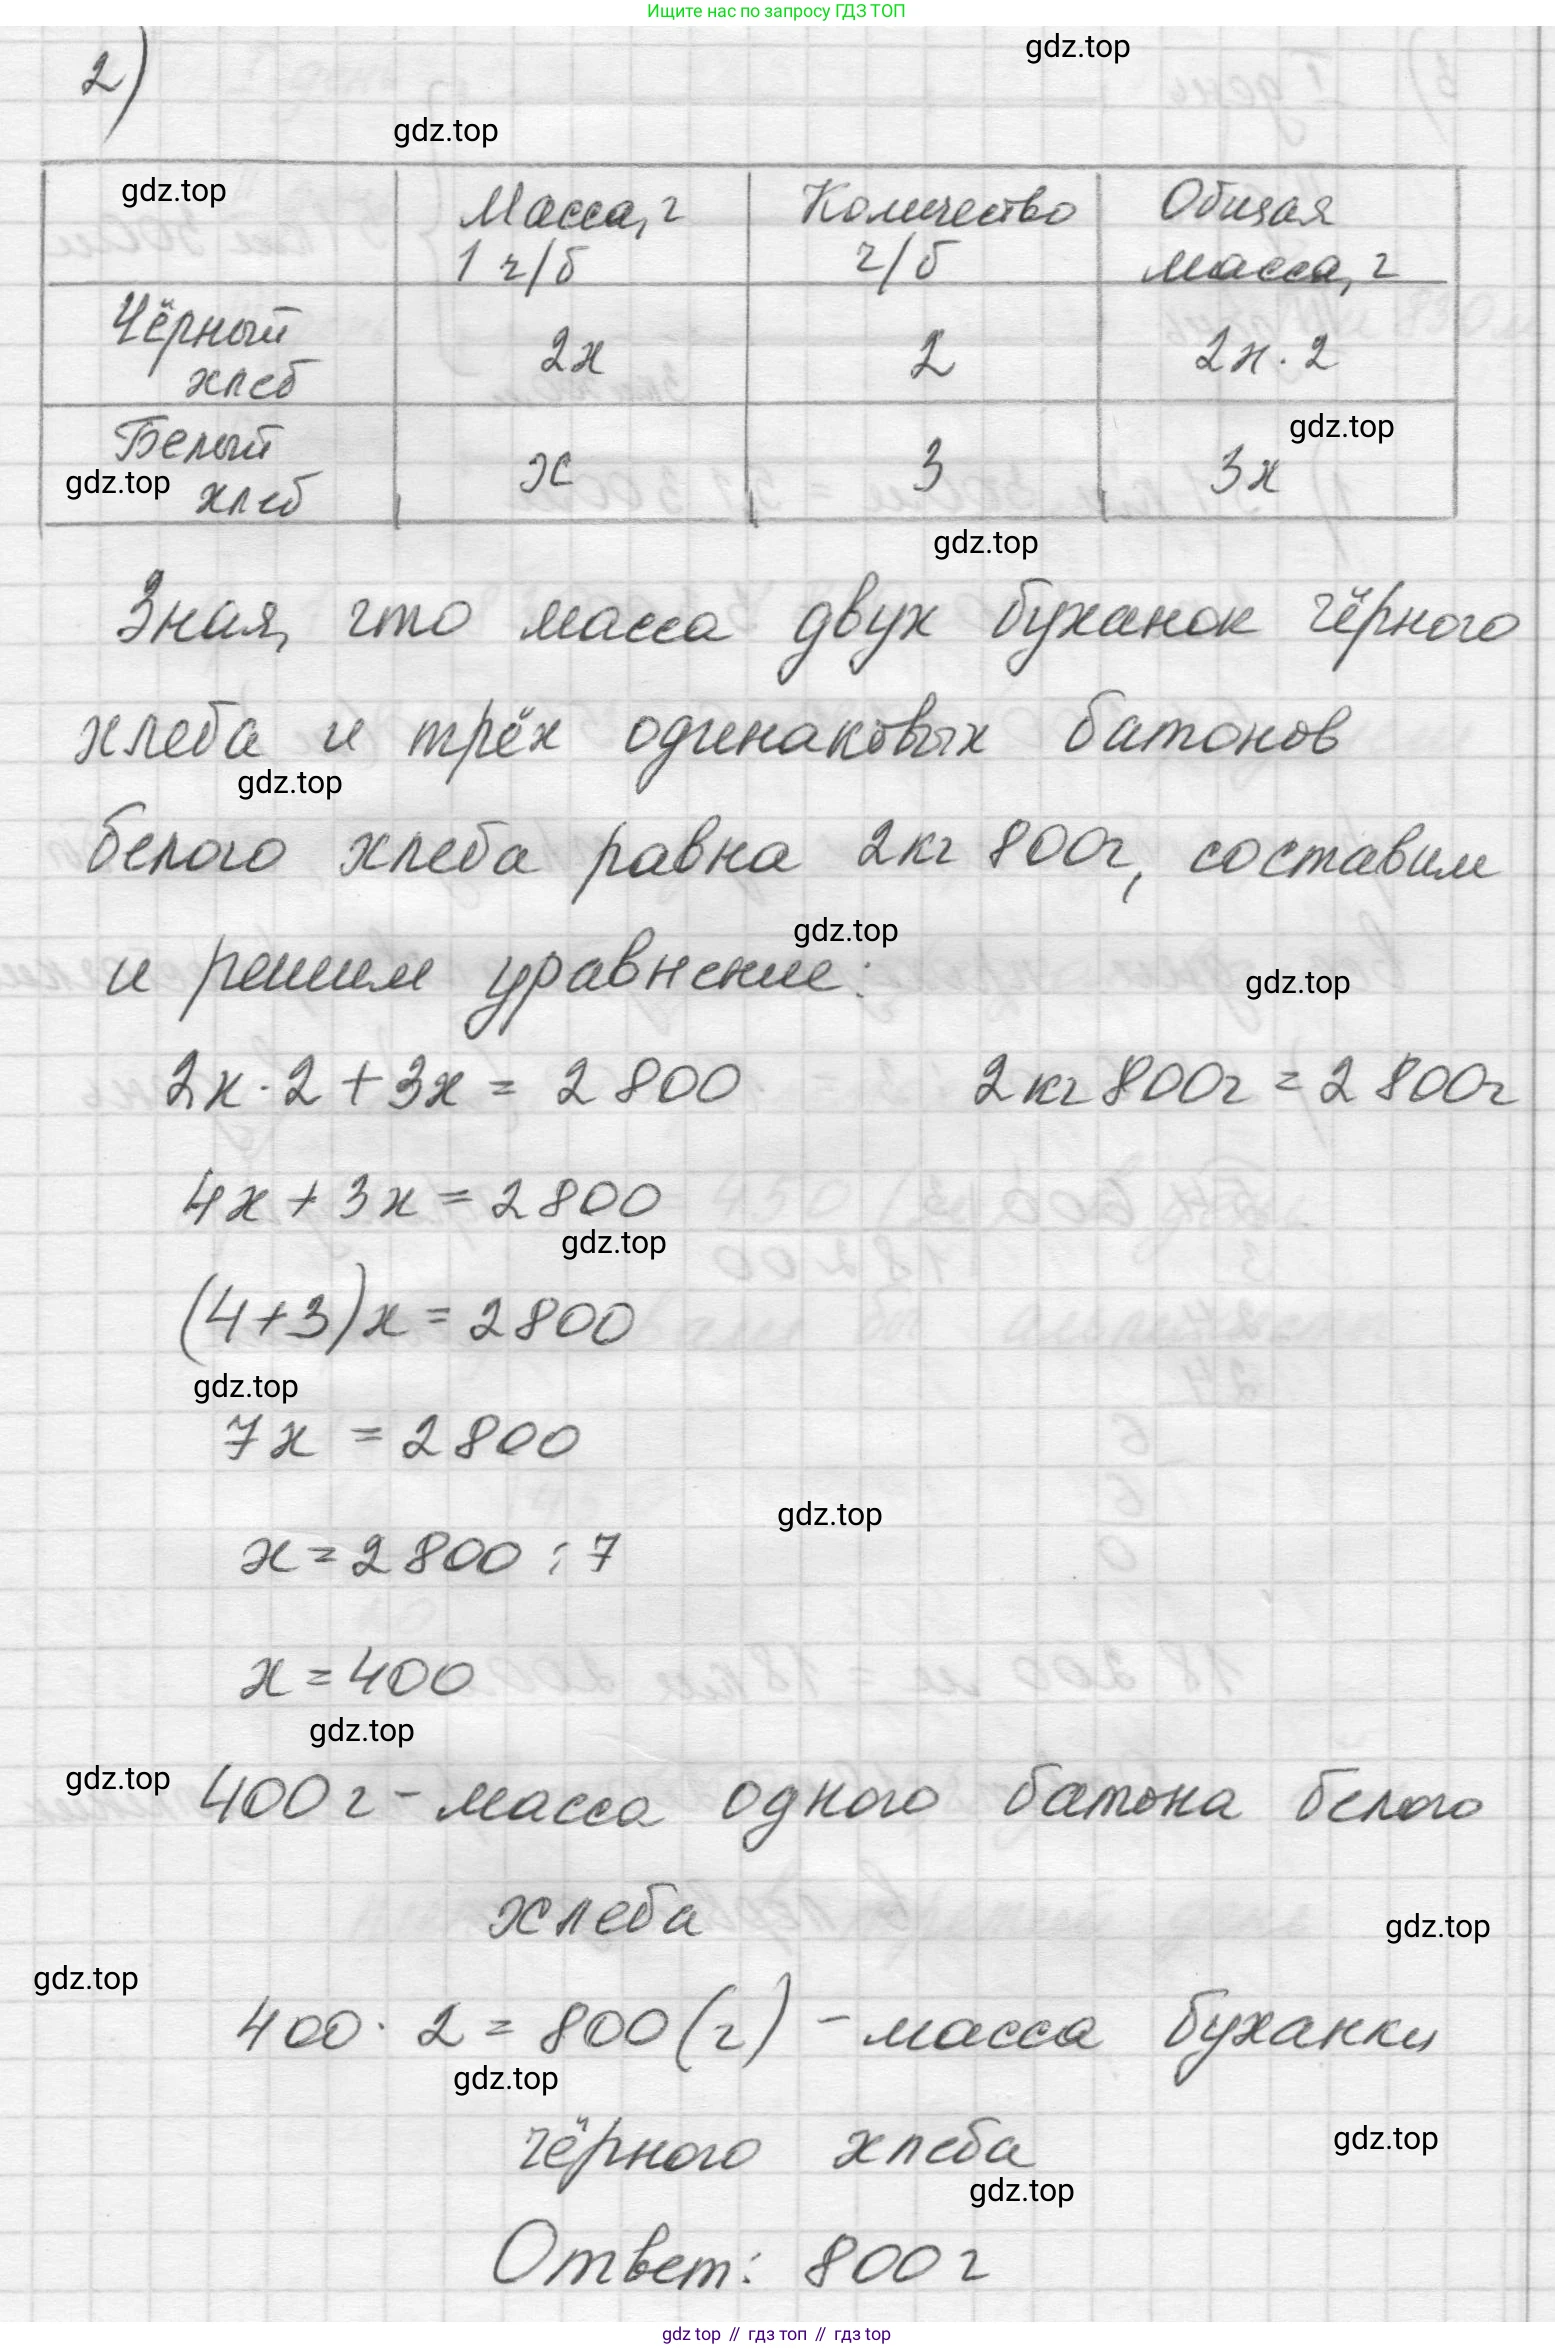 Ищите нас по запросу ГДЗ ТОП
gdz.top
2)
gdz.top
gdz.top
Масса, г
1 ч/б
Количество
ч/б
Общая
масса, г
Чёрный
хлеб
2х
2
2х · 2
gdz.top
Белый
хлеб
gdz.top
х
3
3х
gdz.top
Зная, что масса двух буханок чёрного
хлеба и трёх одинаковых батонов
gdz.top
белого хлеба равна 2кг 800г, составим
gdz.top
и решим уравнение:
gdz.top
2х · 2 + 3х = 2800 2кг 800г = 2800г
4х + 3х = 2800
gdz.top
(4+3)х = 2800
gdz.top
7х = 2800
gdz.top
х = 2800 : 7
х = 400
gdz.top
gdz.top
400г - масса одного батона белого
хлеба
gdz.top
gdz.top
400 · 2 = 800 (г) - масса буханки
gdz.top
чёрного хлеба
gdz.top
gdz.top
Ответ: 800г
gdz top // гдз топ // гдз top